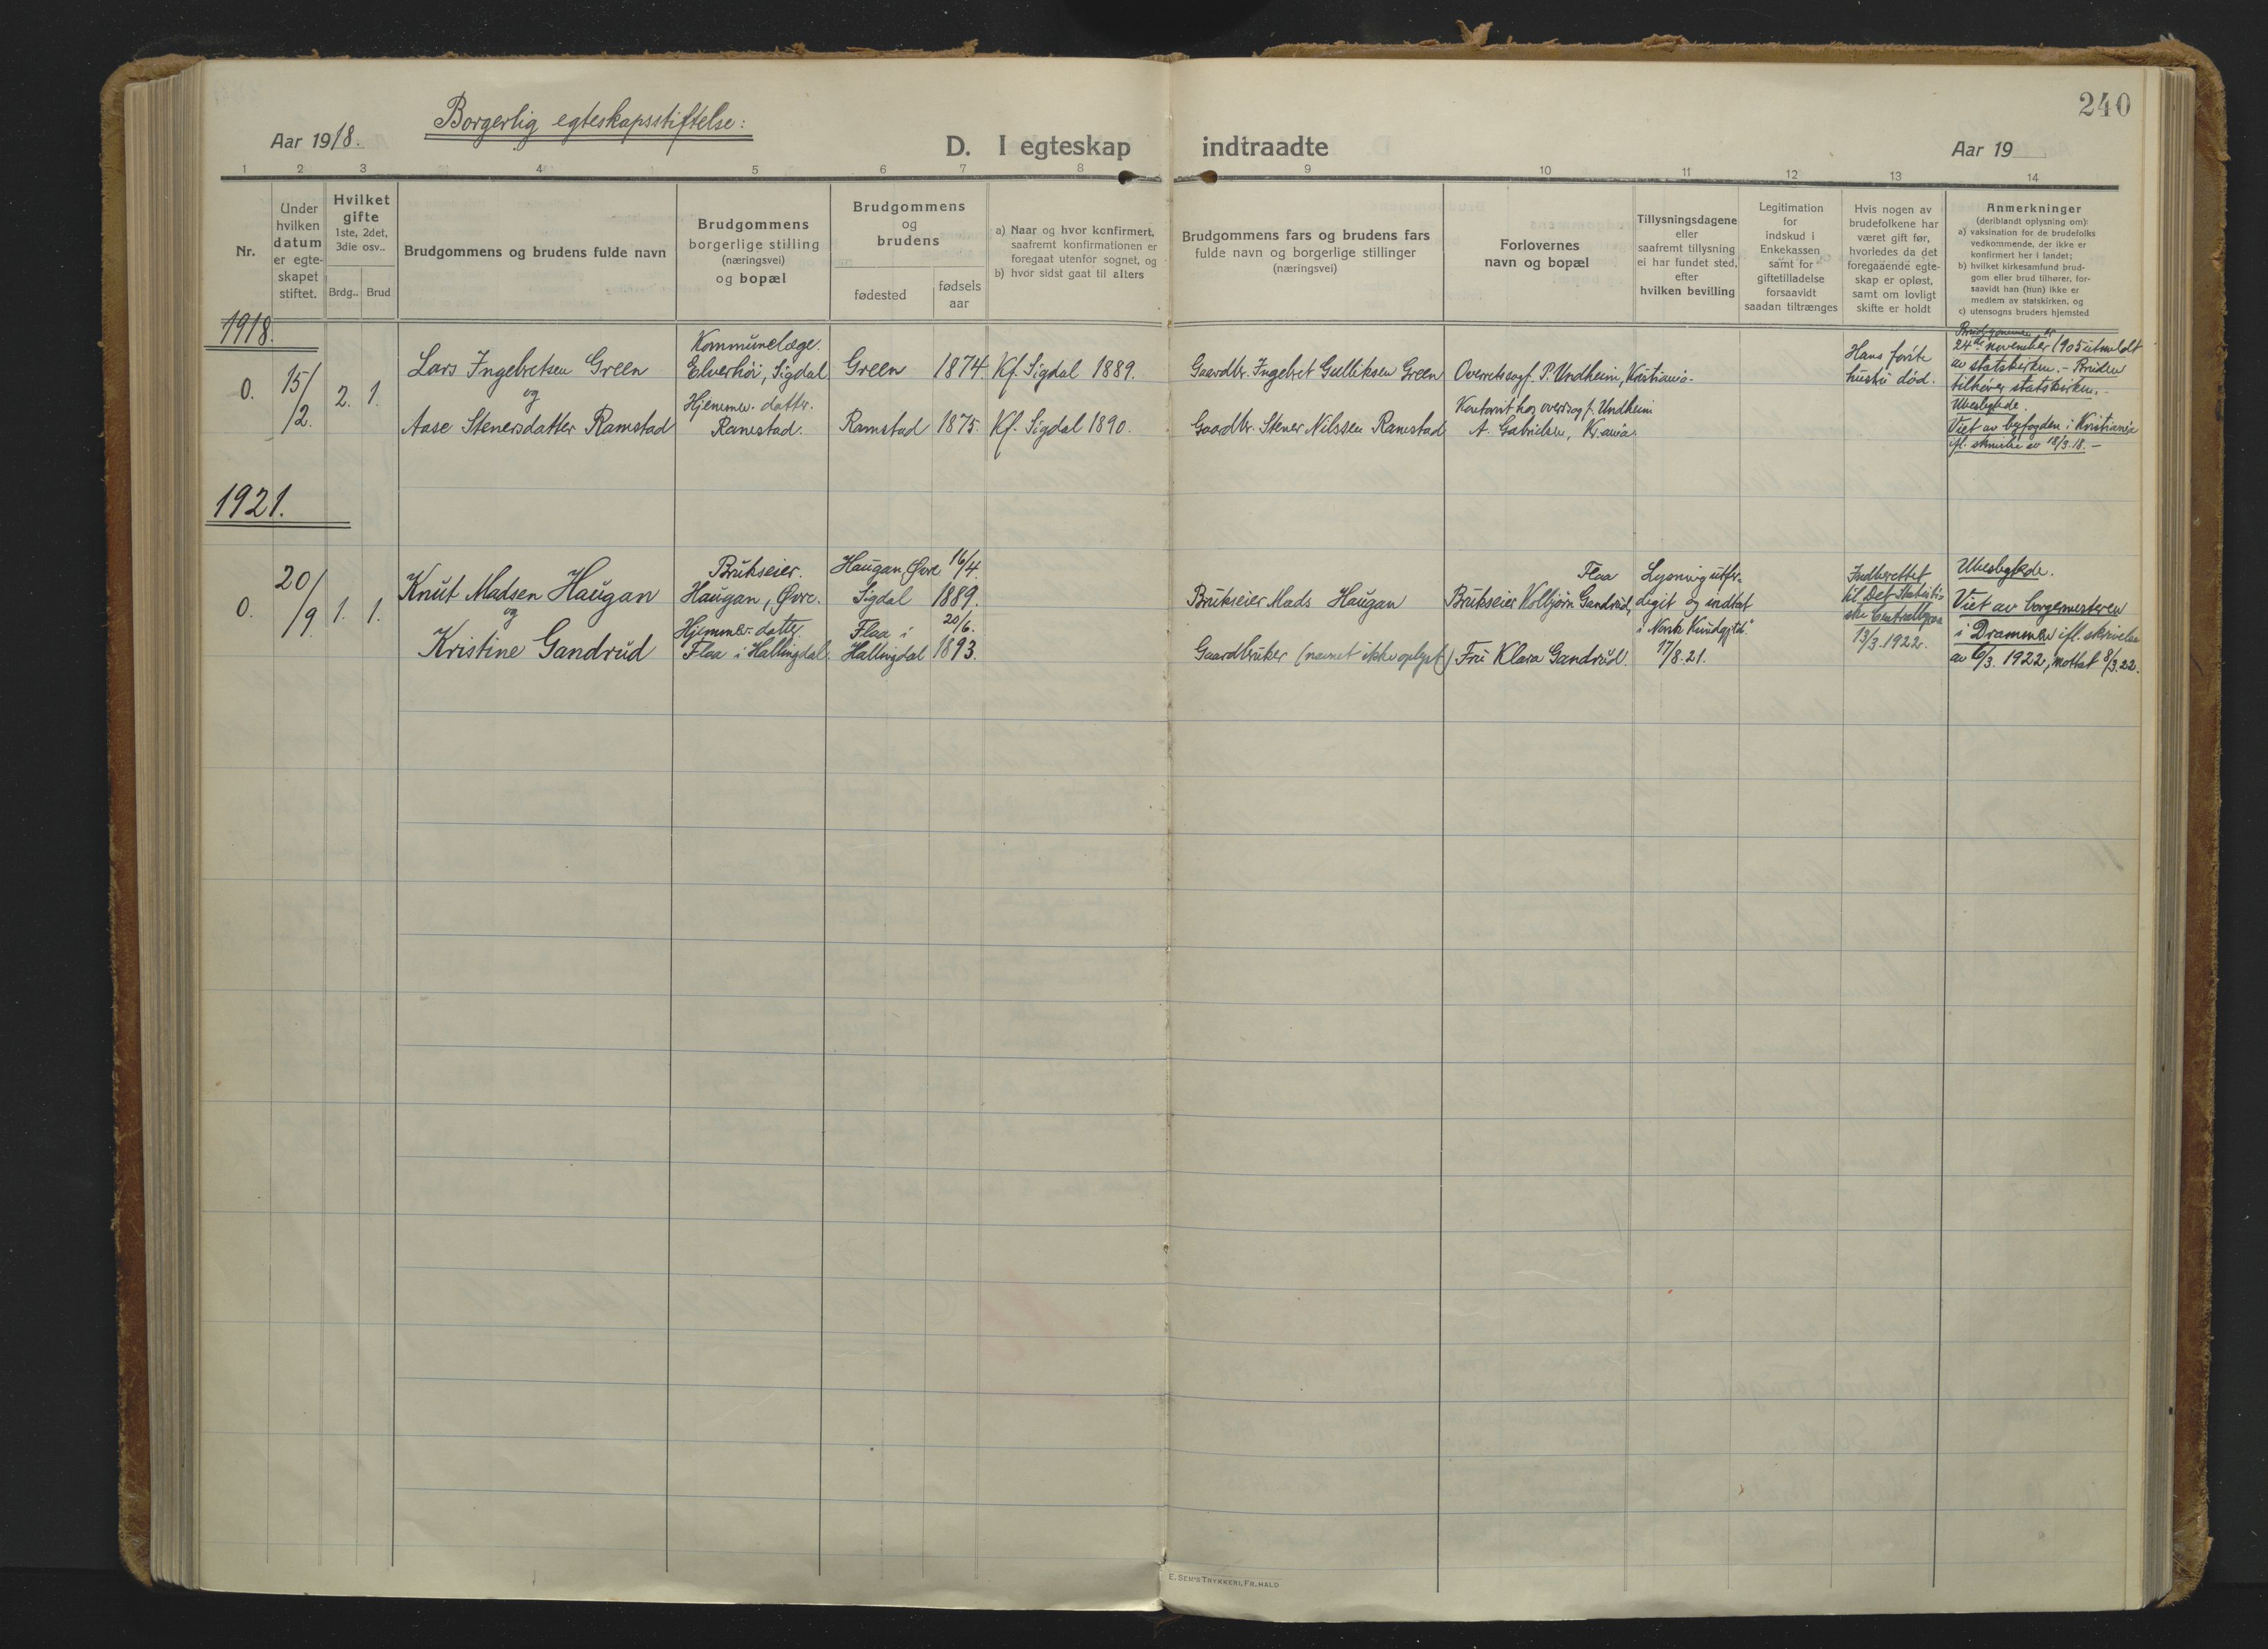 240
Aar 1918.
Borgerlig egteskapsstiftelse:
D. I egteskap indtraadte
Aar 19
1 2 3 4 5 6 7 8 9 10 11 12 13 14
Nr.
Under
hvilken
datum
er egte-
skapet
stiftet.
Hvilket
gifte
1ste, 2det,
3die osv..
Brdg.. Brud
Brudgommens og brudens fulde navn
Brudgommens
borgerlige stilling
(næringsvei)
og bopæl
Brudgommens
og
brudens
fødested
fødsels
aar
a) Naar og hvor konfirmert,
saafremt konfirmationen er
foregaat utenfor sognet, og
b) hvor sidst gaat til alters
Brudgommens fars og brudens fars
fulde navn og borgerlige stillinger
(næringsvei)
Forlovernes
navn og bopæl
Tillysningsdagene
eller
saafremt tillysning
ei har fundet sted,
efter
hvilken bevilling
Legitimation
for
indskud i
Enkekassen
samt for
giftetilladelse
forsaavidt
saadan tiltrænges
Hvis nogen av
brudefolkene har
været gift før,
hvorledes da det
foregaaende egte-
skap er opløst,
samt om lovligt
skifte er holdt
Anmerkninger
(deriblandt oplysning om):
a) vaksination for de brudefolks
vedkommende, der ikke er
konfirmert her i landet;
b) hvilket kirkesamfund brud-
gom eller brud tilhører, for-
saavidt han (hun) ikke er
medlem av statskirken, og
c) utensogns bruders hjemsted
1918.
0.
15/
/2.
2. 1.
Lars Ingebretsen Green
og
Aase Stenersdatter Ramstad
Kommunelæge.
Elverhöi, Sigdal
Hjemmev. datter.
Ramstad.
Green 1874.
Ramstad 1875.
Kf. Sigdal 1889.
Kf. Sigdal 1890.
Gaardbr. Ingebret Gulliksen Green
Gaardbr. Stener Nilssen Ramstad
Overretssagf. P. Undheim, Kristiania.
Kontorist hos overrsagf. Undheim
A. Gabrielsen, Kr.ania.
Hans første
hustru død.
Brudgommen er
24de november 1905 utmeldt
av statskirken. – Bruden
tilhører statskirken. –
Ubeslegtede.
Viet av byfogden i Kristiania
ifl. skrivelse av 18/3.18. –
1921.
0.
20/
/9.
1. 1.
Knut Madsen Haugan
og
Kristine Gandrud
Brukseier.
Haugan, Øvre.
Hjemmev. datter.
Flaa i Hallingdal.
Haugan, Øvre
Sigdal
Flaa i
Hallingdal
16/4.
1889.
20/6.
1893.
Brukseier Mads Haugan
Gaardbruker (navnet ikke oplyst)
Flaa
Brukseier Kolbjørn Gandrud,
Fru Klara Gandrud.
Lysning utfær-
digit og indtat
i "Norsk Kundgjtd."
17/8.21.
Indberettet
til Det Statisti-
ske Centralbyraa
13/3.1922.
Ubeslegtede.
Viet av borgermesteren
i Drammen ifl. skrivelse
av 6/3. 1922, mottat 8/3.22.
E. SEM'S TRYKKERI, FR. HALD